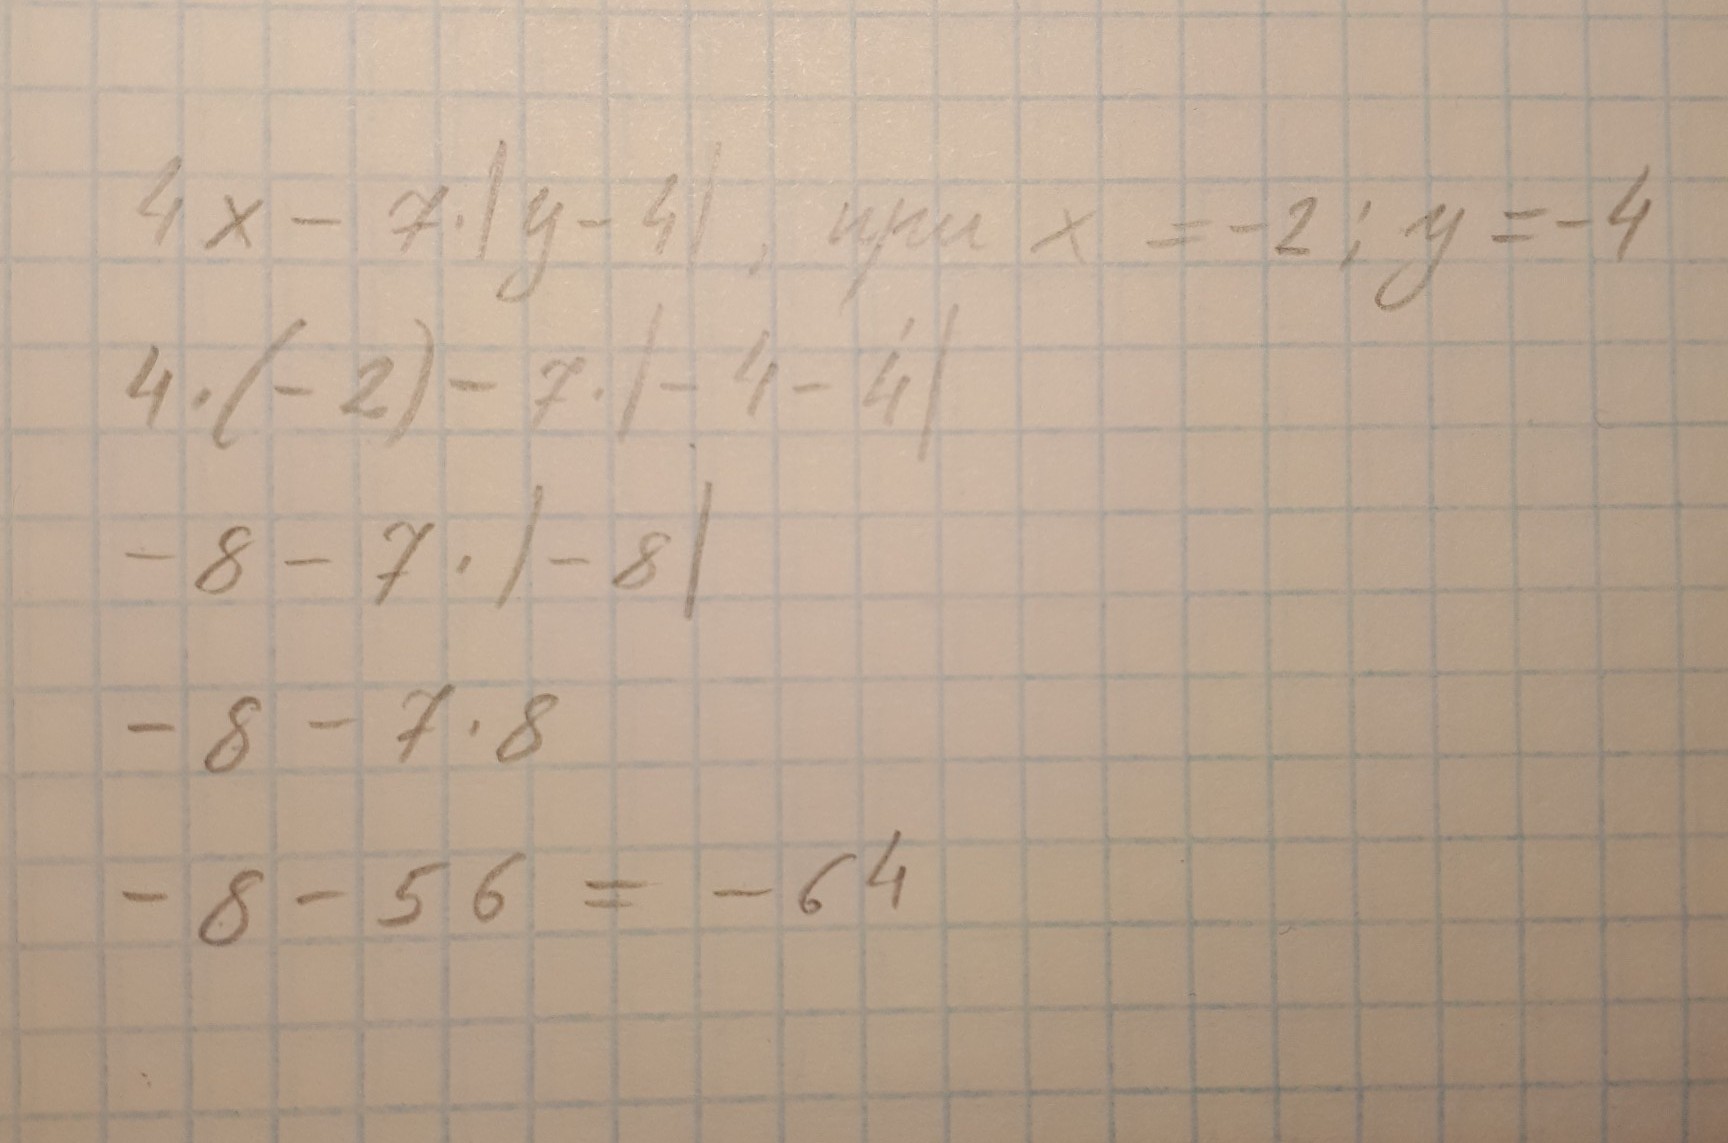 4x - 7·|y - 4|, при x = -2; y = -4
4·(-2) - 7·|-4 - 4|
-8 - 7·|-8|
-8 - 7·8
-8 - 56 = -64